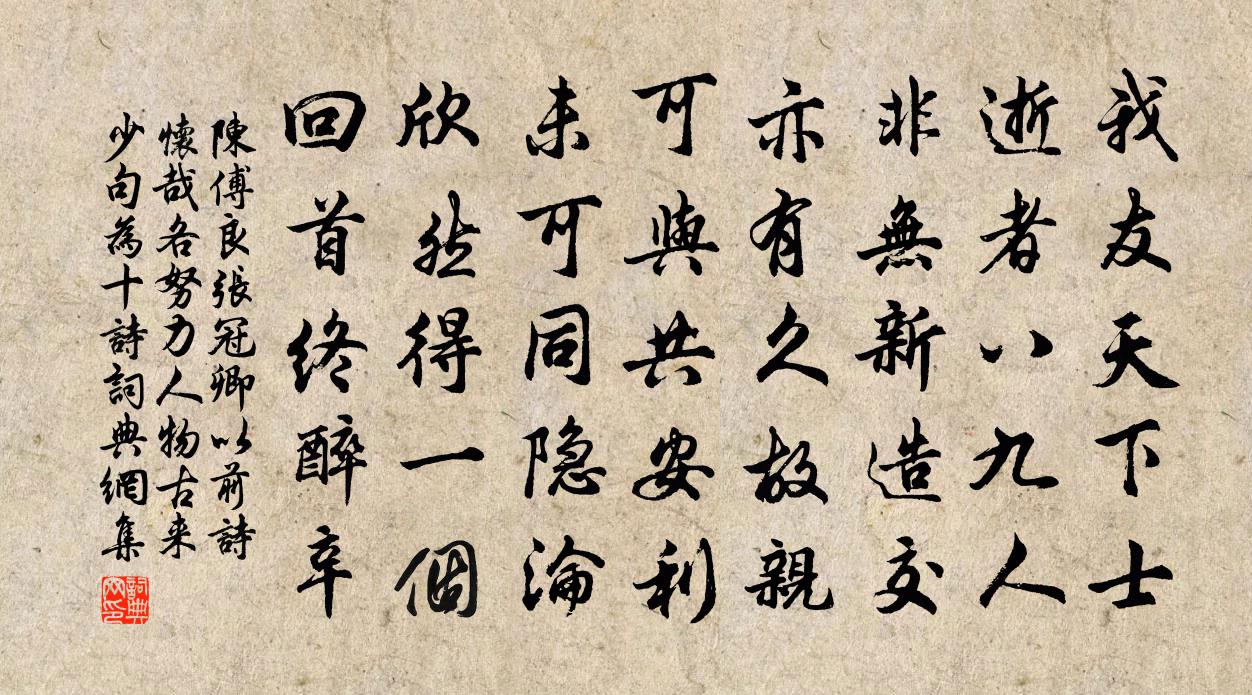 我友天下士
逝者八九人
非無新造交
亦有久故親
可與共安利
未可同隐淪
欣然得一個
回首終醉辛
陳傅良張冠卿以前詩
懷哉各努力人物古来
少句為十詩詞典網集
詞典
网印